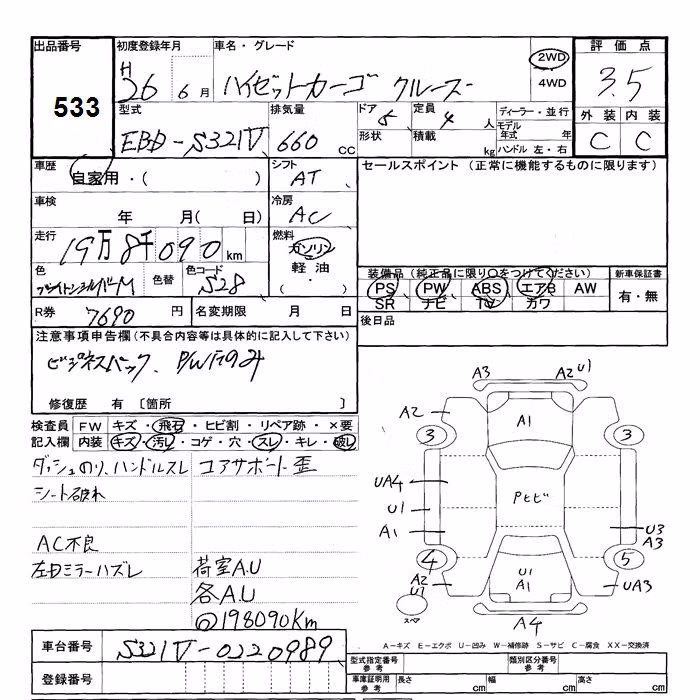 出品番号 初度登録年月 車名・グレード 評価点
533
H26 6月 ハイゼットカーゴ クルーズ 2WD 4WD 3.5
型式 排気量 ドア 定員 ディーラー・並行 外装 内装
EBD-S321V 660 CC 5 4人 モデル年式 年 C C
形状 積載 kg ハンドル 左・右
車歴 自家用・( ) シフト AT セールスポイント (正常に機能するものに限ります)
車検 年 月( 日) 冷房 AC
走行 19万8千090km 燃料 ガソリン
軽油
・( )
色 色替 色コード S28 装備品(純正品に限り○をつけてください) 新車保証書
PS PW ABS エアB AW 有・無
SR ナビ TV カワ
R券 7690円 名変期限 月 日 後日品
注意事項申告欄(不具合内容等は具体的に記入して下さい)
ビジネスパック、
修復歴 有 〔箇所 〕
検査員 FW キズ・飛石・ヒビ割・リペア跡・×要
記入欄 内装 キズ・汚レ・コゲ・穴・スレ・キレ・破レ
ダッシュのり、ハンドルスレ コアサポート歪
シート破れ
AC不良
左Dミラーハズレ 荷室A.U
各A.U
◎198090Km
A3 A2 U1
A2 A1
3 3
UA4 Pヒビ
U1
A1 U3
A3
4 5
A2 U1 UA3
U1 A1
スペア A4
A-キズ E-エクボ U-凹み W-補修跡 S-サビ C-腐食 XX-交換済
車台番号 S321V-0220989
型式指定番号 参考 類別区分番号 参考
登録番号 車庫証明用 参考 長さ cm 幅 cm 高さ cm